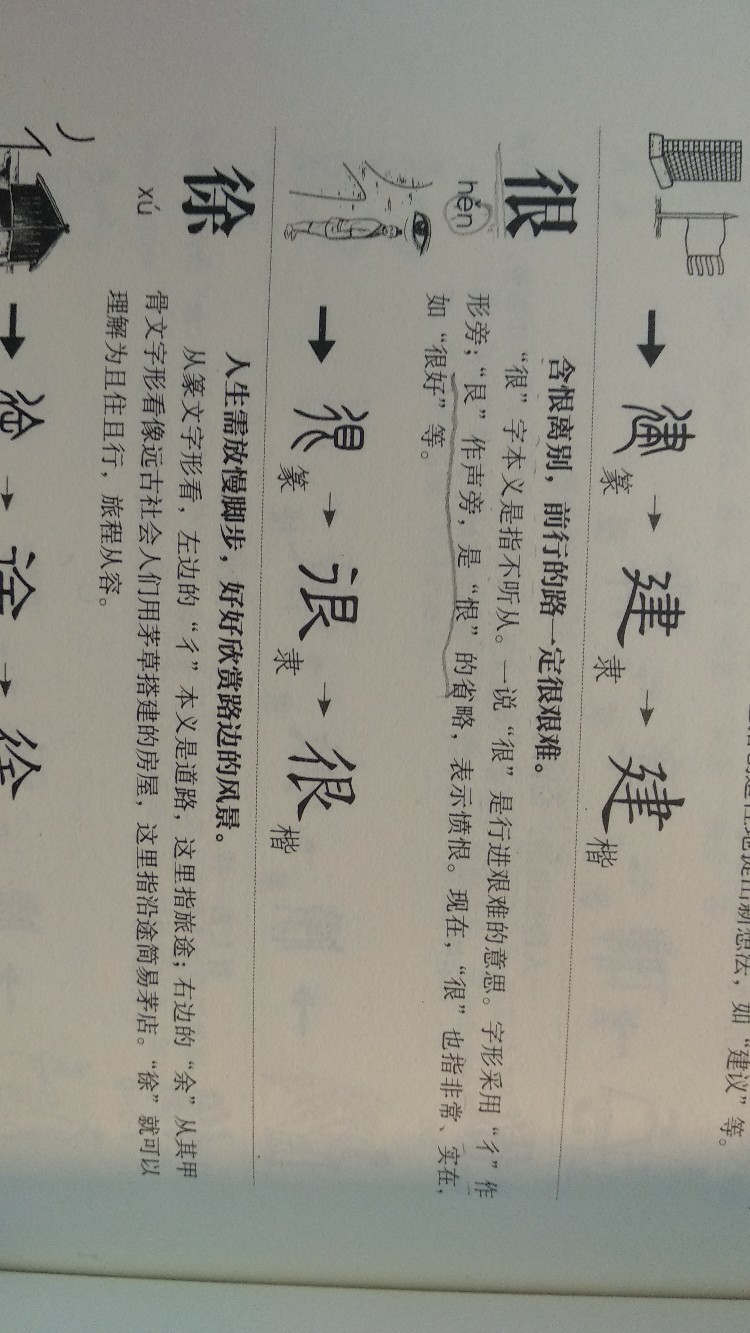 地提出新想法，如“建议”等。
篆 建 隶 建 楷
很
hěn
含恨离别，前行的路一定很艰难。
“很”字本义是指不听从。一说“很”是行进艰难的意思。字形采用“彳”作
形旁；“艮”作声旁，是“恨”的省略，表示愤恨。现在，“很”也指非常、实在，
如“很好”等。
篆 隶 很 楷
徐
xú
人生需放慢脚步，好好欣赏路边的风景。
从篆文字形看，左边的“彳”本义是道路，这里指旅途；右边的“余”从其甲
骨文字形看像远古社会人们用茅草搭建的房屋，这里指沿途简易茅店。“徐”就可以
理解为且住且行，旅程从容。
徐